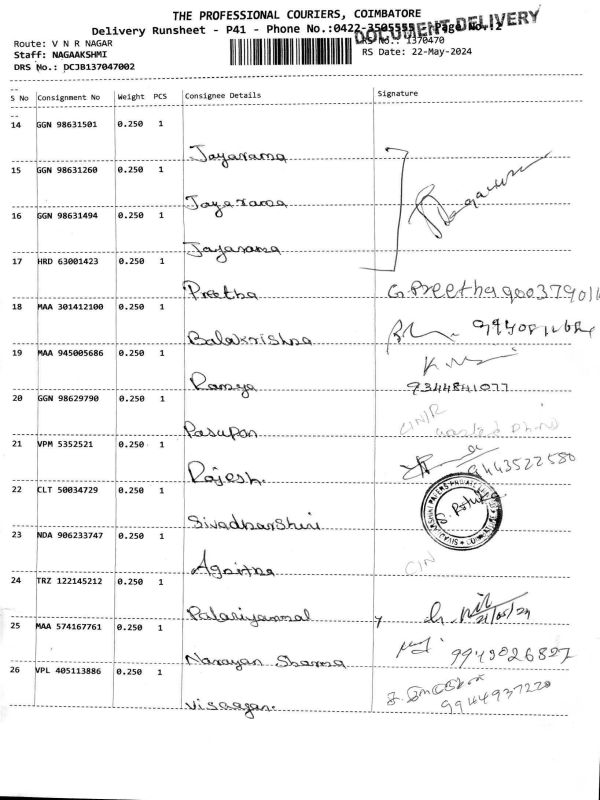 THE PROFESSIONAL COURIERS, COIMBATORE
Delivery Runsheet - P41 - Phone No.:0422-3505555 - Page No.:2
DOCUMENT DELIVERY
Route: V N R NAGAR
DRS No.: 1370470
Staff: NAGAAKSHMI
RS Date: 22-May-2024
DRS No.: DCJB137047002
S No Consignment No Weight PCS Consignee Details Signature
14 GGN 98631501 0.250 1
Jayarama
15 GGN 98631260 0.250 1
Jayarama
16 GGN 98631494 0.250 1
Jayarama
17 HRD 63001423 0.250 1
Preetha G.Preetha
18 MAA 301412100 0.250 1
Balakrishna
19 MAA 945005686 0.250 1
Ramya 9344841077
20 GGN 98629790 0.250 1
Pasupan
21 VPM 5352521 0.250 1
Rajesh 9443522580
22 CLT 50034729 0.250 1
Sivadharshini
23 NDA 906233747 0.250 1
24 TRZ 122145212 0.250 1
Palaniyammal
25 MAA 574167761 0.250 1
Narayan Sharma 9943026827
26 VPL 405113886 0.250 1
Visaagan 9944937220